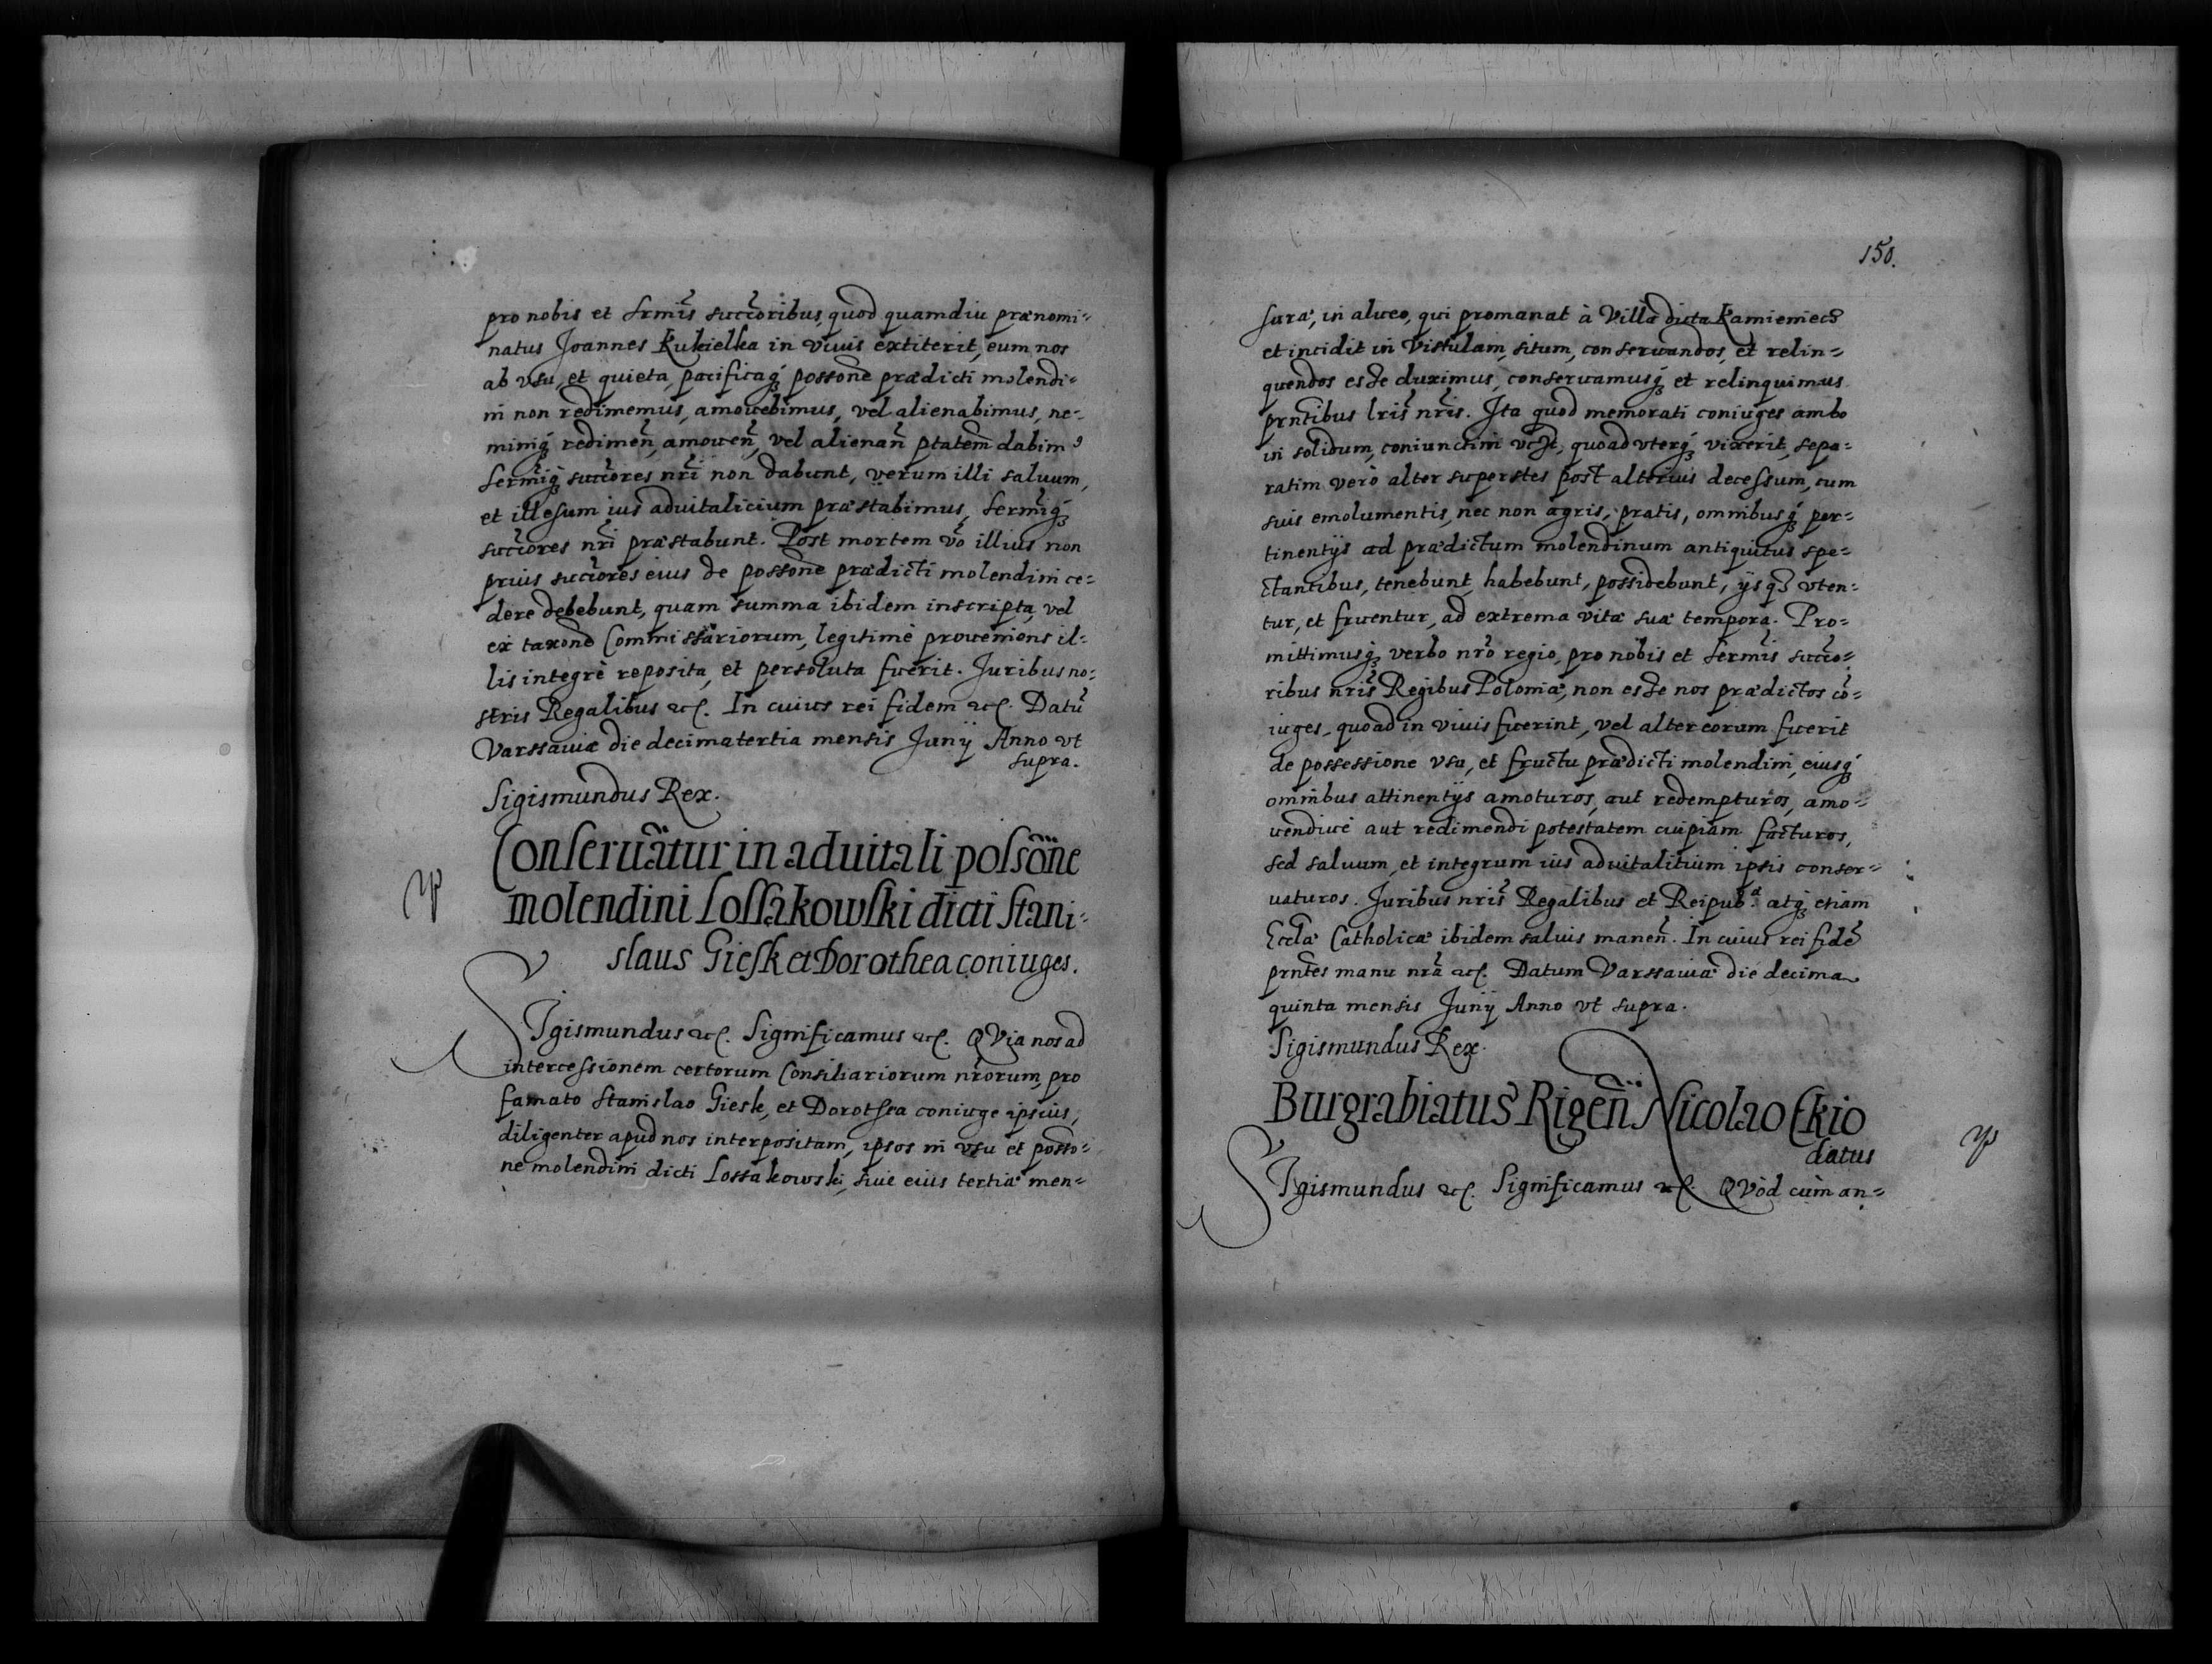 pro nobis et Srmis succoribus, quod quamdiu prænomi-
natus Joannes Kukielka in vivis extiterit, eum nos
ab vsu, et quieta, pacificaq́ꝫ possone prædicti molendi-
ni non redimemus, amovebimus, vel alienabimus, ne-
miniq́ꝫ redimen̄, amoven̄, vel alienan̄ ptatem dabimꝰ
Sermiq́ꝫ succores nr̃i non dabunt, verum illi salvum,
et illesum ius advitalicium præstabimus, Sermiq́ꝫ
succores nr̃i præstabunt. Post mortem vo illius non
prius succores eius de possone prædicti molendini ce-
dere debebunt, quam summa ibidem inscripta, vel
ex taxone Commissariorum, legitimè proveniens il-
lis integrè reposita, et persoluta fuerit. Juribus no-
stris Regalibus etc. In cuius rei fidem etc. Datū
Varssaviæ die decimatertia mensis Junij Anno vt
supra.
Sigismundus Rex.
Conservantur in advitali possone
molendini Lossakowski dicti Stani-
slaus Giesk et Dorothea coniuges.
SIgismundus etc. Significamus etc. QVia nos ad
intercessionem certorum Consiliariorum nr̃orum, pro
famato Stanislao Giesk, et Dorothea coniuge ipsius,
diligenter apud nos interpositam, ipsos in vsu et posso-
ne molendini dicti Lossakowski, sive eius tertiæ men-
150.
suræ, in alveo, qui promanat à Villa dicta Kamieniecz
et incidit in Vistulam, situm, conservandos, et relin-
quendos esse duximus, conservamusq́ꝫ et relinquimus
prntibus lris nr̃is. Ita quod memorati coniuges ambo
in solidum, coniunctim vcꝫ, quoad vterq́ꝫ vixerit, sepa-
ratim verò alter superstes post alterius decessum, cum
suis emolumentis, nec non agris, pratis, omnibusq́ꝫ per-
tinentijs ad prædictum molendinum antiquitus spe-
ctantibus, tenebunt, habebunt, possidebunt, ijsqꝫ vten-
tur, et fruentur, ad extrema vitæ suæ tempora. Pro-
mittimusq́ꝫ verbo nr̃o regio, pro nobis et Sermis succo-
ribus nr̃is Regibus Poloniæ, non esse nos prædictos cō-
iuges, quoad in vivis fuerint, vel alter eorum fuerit
de possessione vsu, et fructu prædicti molendini, eiusq́ꝫ
omnibus attinentijs amoturos, aut redempturos, amo-
vendivè aut redimendi potestatem cuipiam facturos,
sed salvum, et integrum ius advitalitium ipsis conser-
vaturos. Juribus nr̃is Regalibus et Reipub. atqꝫ etiam
Eccłæ Catholicæ ibidem salvis manen̄. In cuius rei fidē
prntes manu nr̃a etc. Datum Varssaviæ die decima
quinta mensis Junij Anno vt supra.
Sigismundus Rex.
Burgrabiatus Rigen̄ Nicolao Ekio
datus
SIgismundus etc. Significamus etc. QVòd cùm an-